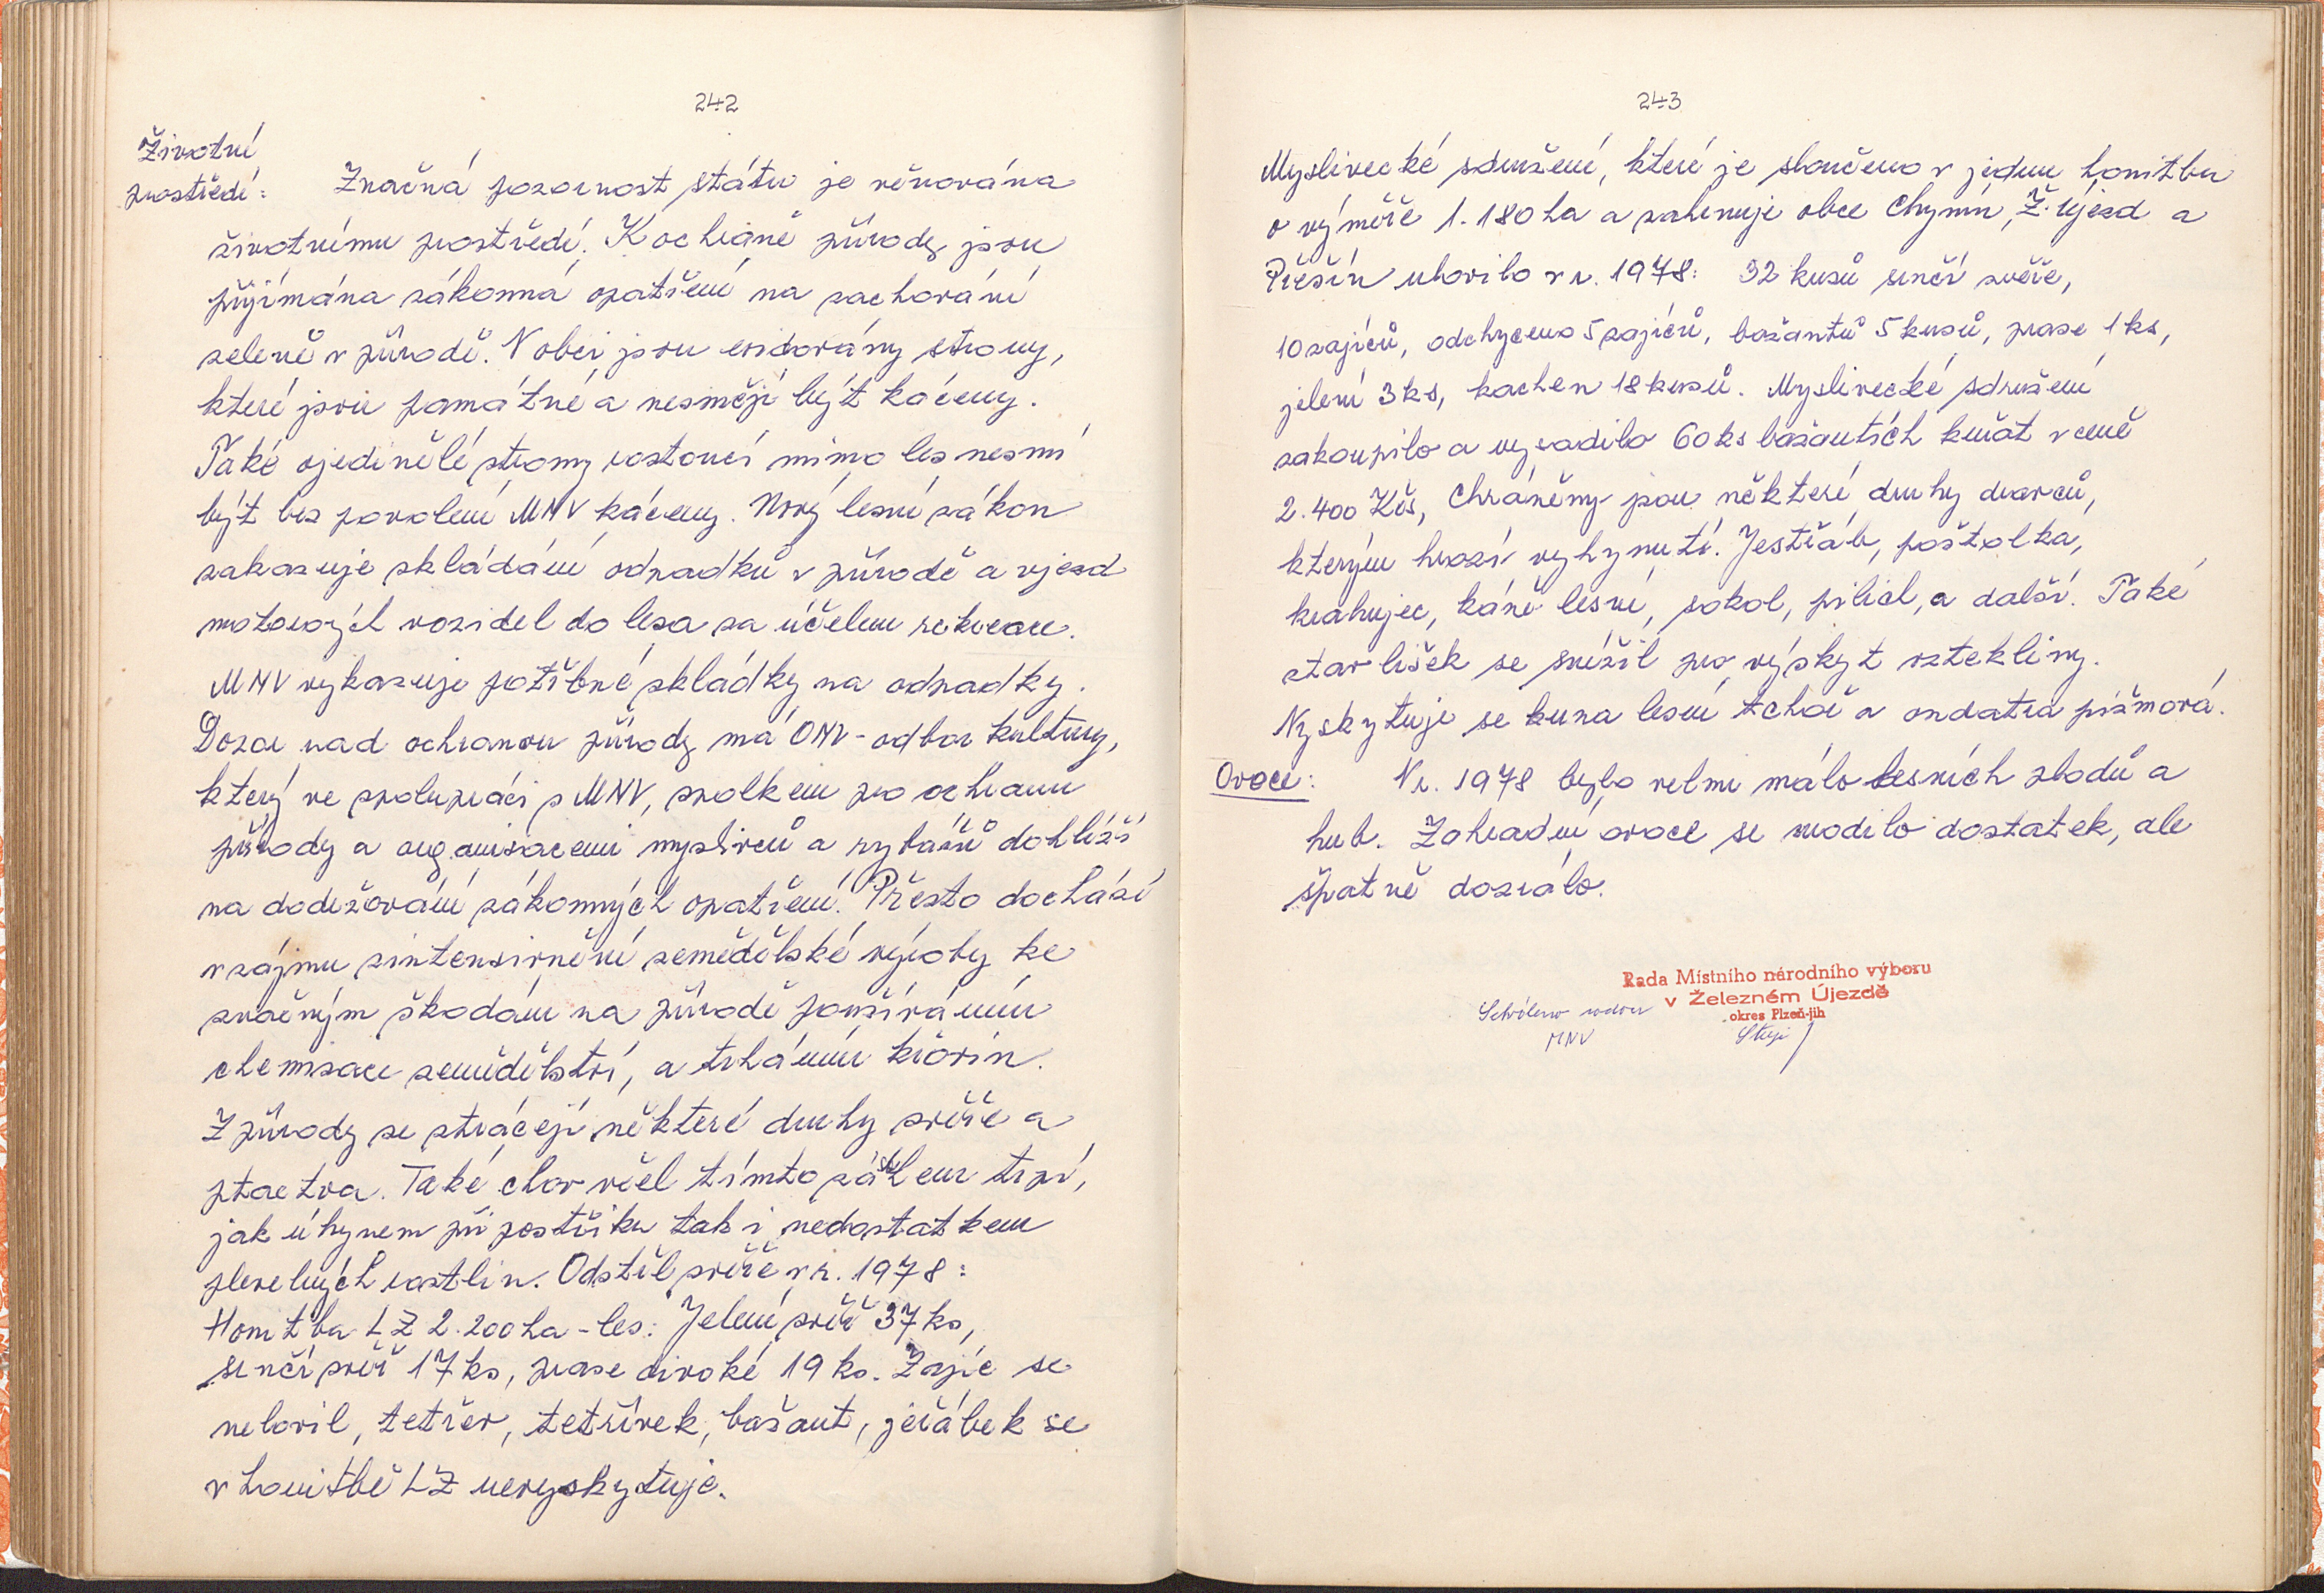 242
Životní
prostředí: Značná pozornost státu je věnována
životnímu prostředí. K ochraně přírody jsou
přijímána zákonná opatření na zachování
zeleně v přírodě. V obci jsou evidovány stromy,
které jsou památné a nesmějí být káceny.
Také ojedinělé stromy rostoucí mimo les nesmí
být bez povolení MNV káceny. Nový lesní zákon
zakazuje skládání odpadků v přírodě a vjezd
motorových vozidel do lesa za účelem rekreace.
MNV vykazuje potřebné skládky na odpadky.
Dozor nad ochranou přírody má ONV - odbor kultury,
který ve spolupráci s MNV, spolkem pro ochranu
přírody a organizacemi myslivců a rybářů dohlíží
na dodržování zákonných opatření. Přesto dochází
v zájmu zintensivnění zemědělské výroby ke
značným škodám na přírodě používáním
chemizace zemědělství, a trháním křovin.
Z přírody se ztrácejí některé druhy zvěře a
ptactva. Také chov včel tímto zásahem trpí,
jak úhynem při postřiku tak i nedostatkem
plevelných rostlin. Odstřel zvěře v r. 1978:
Honitba LZ 2.200 ha - les: Jelení zvěř 37 ks,
srnčí zvěř 17 ks, prase divoké 19 ks. Zajíc se
nelovil, tetřev, tetřívek, bažant, jeřábek se
v honitbě LZ nevyskytuje.
243
Myslivecké sdružení, které je sloučeno v jednu honitbu
o výměře 1.180 ha a zahrnuje obce Chynín, Ž. Újezd a
Přešín ulovilo v r. 1978: 32 kusů srnčí zvěře,
10 zajíců, odchyceno 5 zajíců, bažantů 5 kusů, prase 1 ks,
jelení 3 ks, kachen 18 kusů. Myslivecké sdružení
zakoupilo a vysadilo 60 ks bažantích kuřat v ceně
2.400 Kčs, Chráněny jsou některé druhy dravců,
kterým hrozí vyhynutí. Jestřáb, poštolka,
krahujec, káně lesní, sokol, pilich, a další. Také
stav lišek se snížil pro výskyt vztekliny.
Vyskytuje se kuna lesní tchoř a ondatra pižmová.
Ovoce: V r. 1978 bylo velmi málo lesních plodů a
hub. Zahradní ovoce se urodilo dostatek, ale
špatně dozrálo.
Rada Místního národního výboru
Schváleno radou v Železném Újezdě
okres Plzeň-jih
MNV